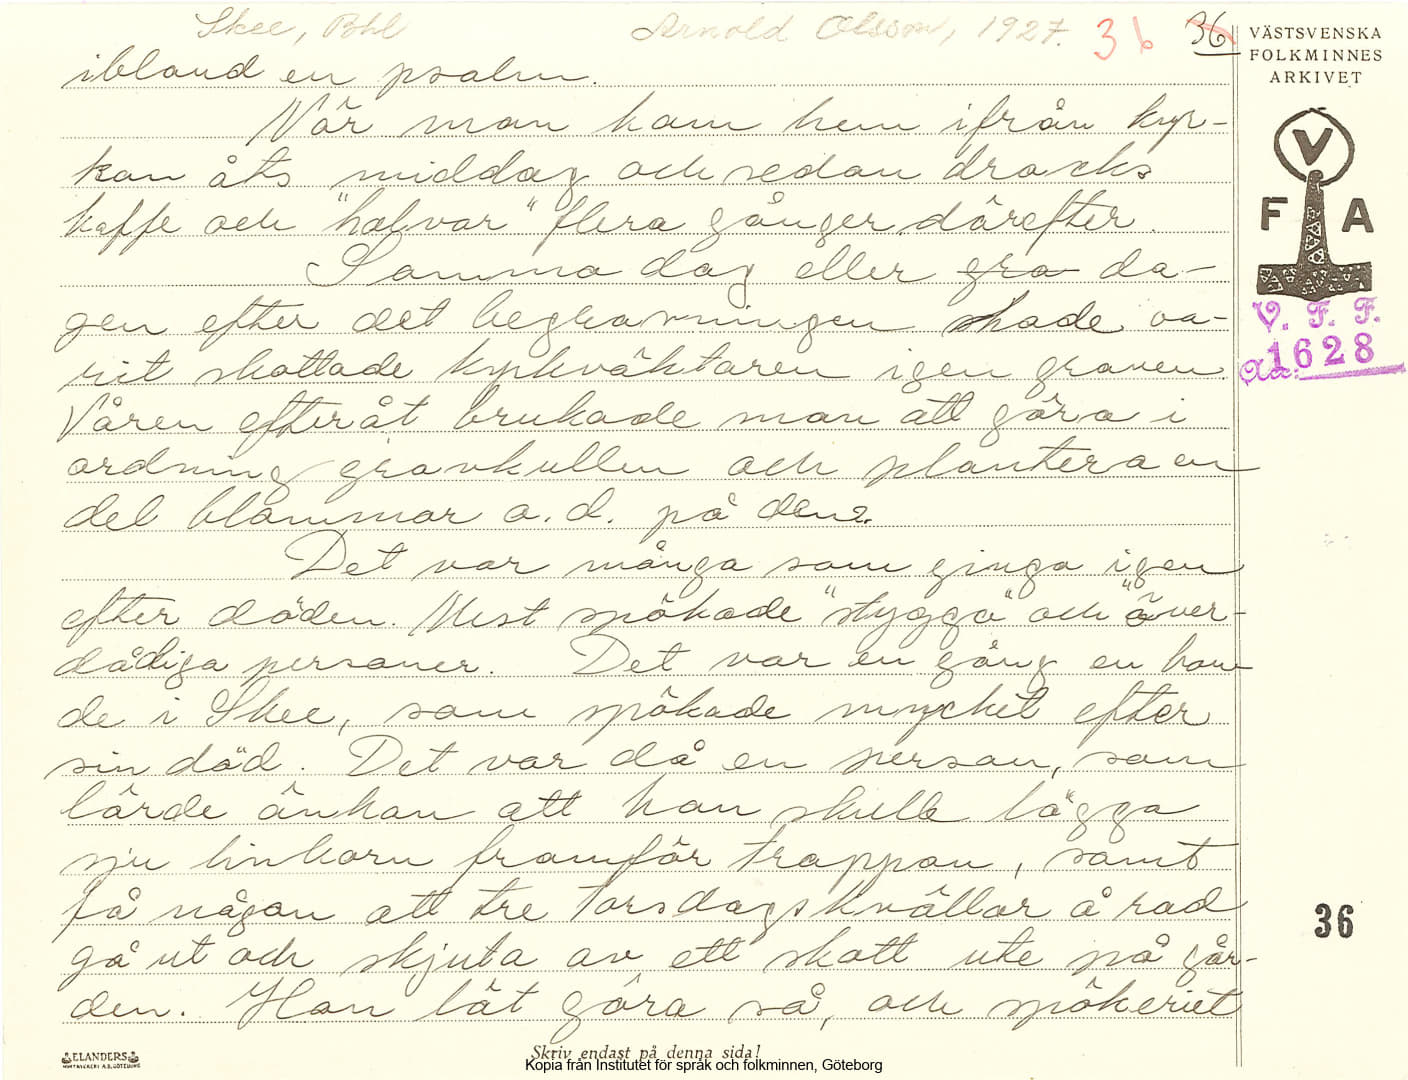 Skee, Bhl Arnold Olsson, 1927. 36 36
VÄSTSVENSKA
FOLKMINNES
ARKIVET
V
F A
V. F. F.
1628
ibland en psalm.
När man kom hem ifrån kyr-
kan åts middag och sedan dracks
kaffe och "halvar" flera gånger därefter.
Samma dag eller gra da-
gen efter det begravningen hade va-
rit skottade kyrkväktaren igen graven.
Våren efteråt brukade man att göra i
ordning gravkullen och plantera en
del blommor o.d. på den.
Det var många som gingo igen
efter döden. Mest spökade "stygga" och "över-
dådiga personer. Det var en gång en bon-
de i Skee, som spökade mycket efter
sin död. Det var då en person, som
lärde änkan att hon skulle lägga
sju linkorn framför trappan, samt
få någon att tre torsdagskvällar å rad
gå ut och skjuta av ett skott ute på går-
den. Hon lät göra så, och spökeriet
36
ELANDERS
Skriv endast på denna sida!
Kopia från Institutet för språk och folkminnen, Göteborg